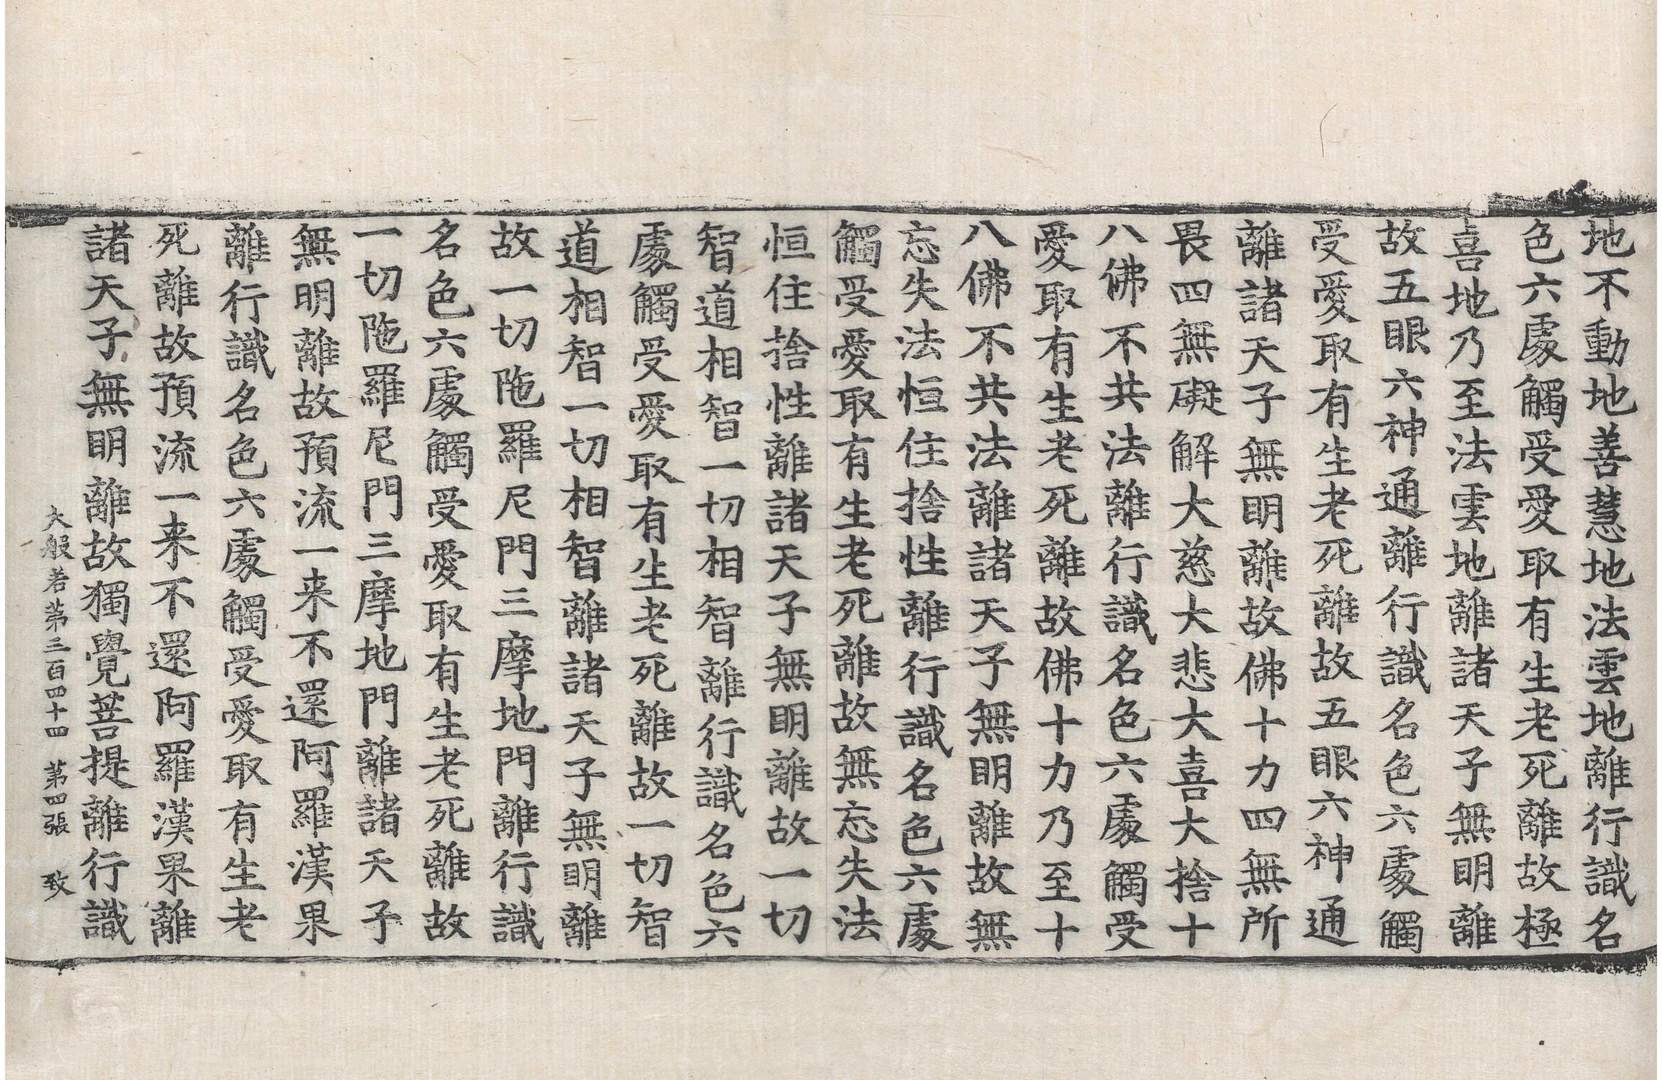 地不動地善慧地法雲地離行識名
色六處觸受愛取有生老死離故極
喜地乃至法雲地離諸天子無明離
故五眼六神通離行識名色六處觸
受愛取有生老死離故五眼六神通
離諸天子無明離故佛十力四無所
畏四無礙解大慈大悲大喜大捨十
八佛不共法離行識名色六處觸受
愛取有生老死離故佛十力乃至十
八佛不共法離諸天子無明離故無
忘失法恒住捨性離行識名色六處
觸受愛取有生老死離故無忘失法
恒住捨性離諸天子無明離故一切
智道相智一切相智離行識名色六
處觸受愛取有生老死離故一切智
道相智一切相智離諸天子無明離
故一切陁羅尼門三摩地門離行識
名色六處觸受愛取有生老死離故
一切陁羅尼門三摩地門離諸天子
無明離故預流一来不還阿羅漢果
離行識名色六處觸受愛取有生老
死離故預流一来不還阿羅漢果離
諸天子無明離故獨覺菩提離行識
大般若第三百四十四 第四張 致